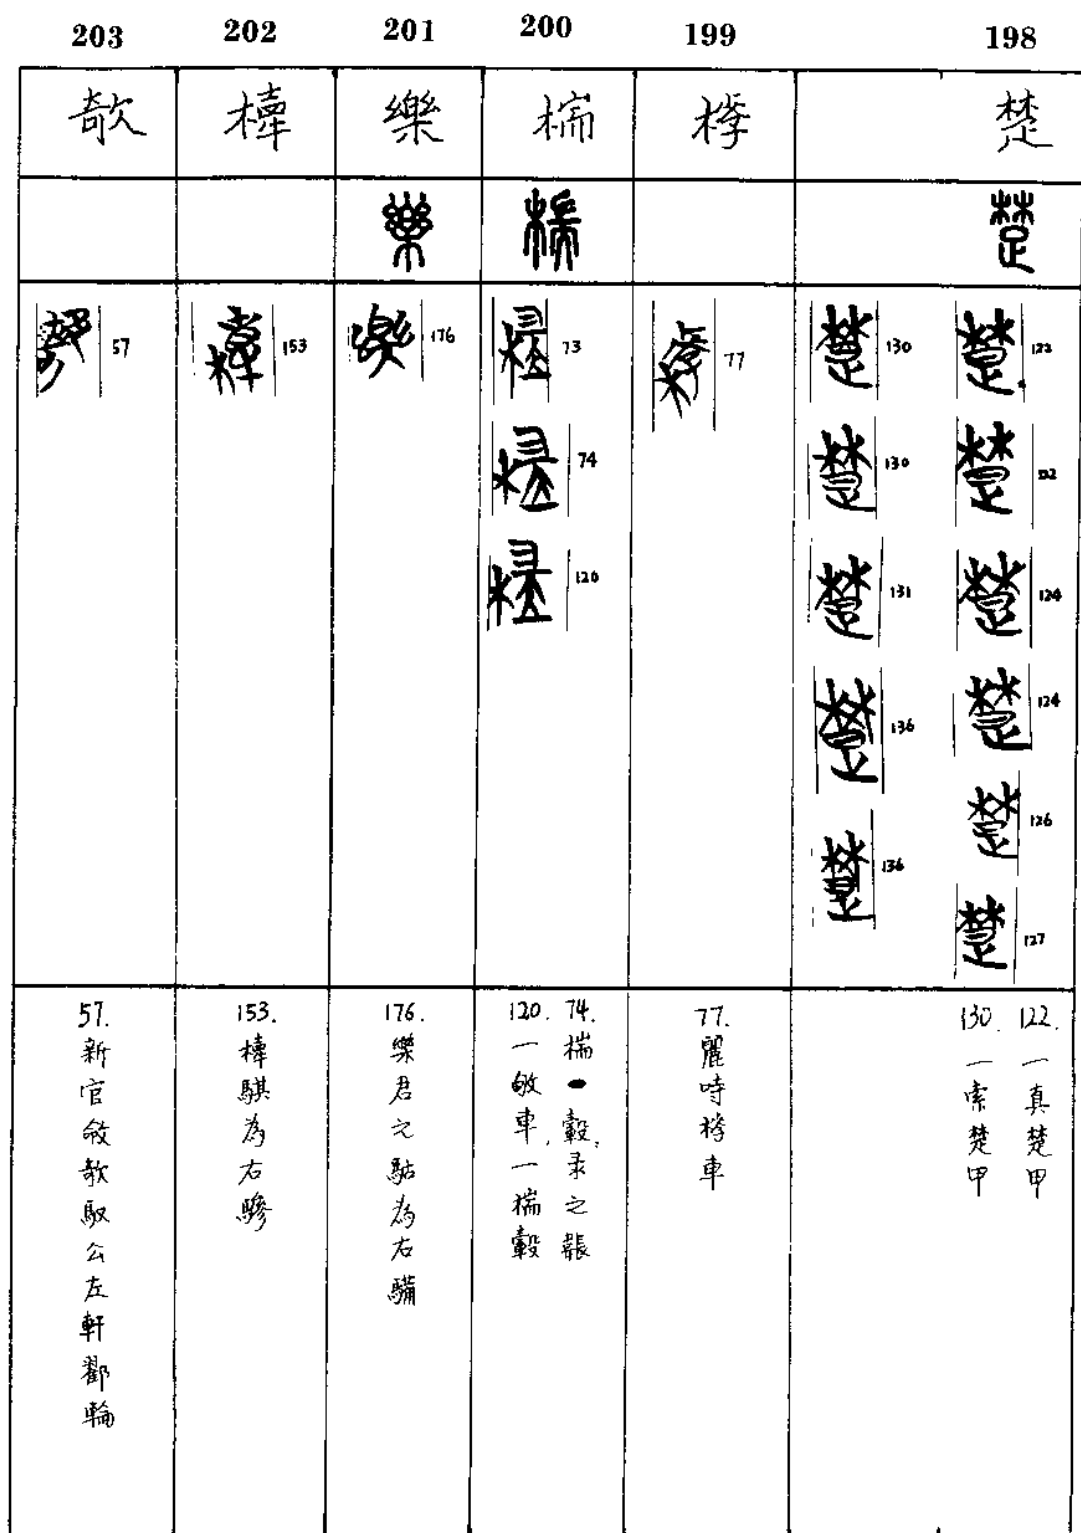 198
楚
122
122
124
124
126
127
130
130
131
136
136
122. 一真楚甲
130. 一索楚甲
199
77
77. 麗時車
200
椯
73
74
120
74. 椯轂，录之
120. 一畋車，一椯轂
201
樂
176
176. 樂君之為右
202
樟
153
153. 樟騏為右驂
203
欹
57
57. 新官欹馭公左軒輪